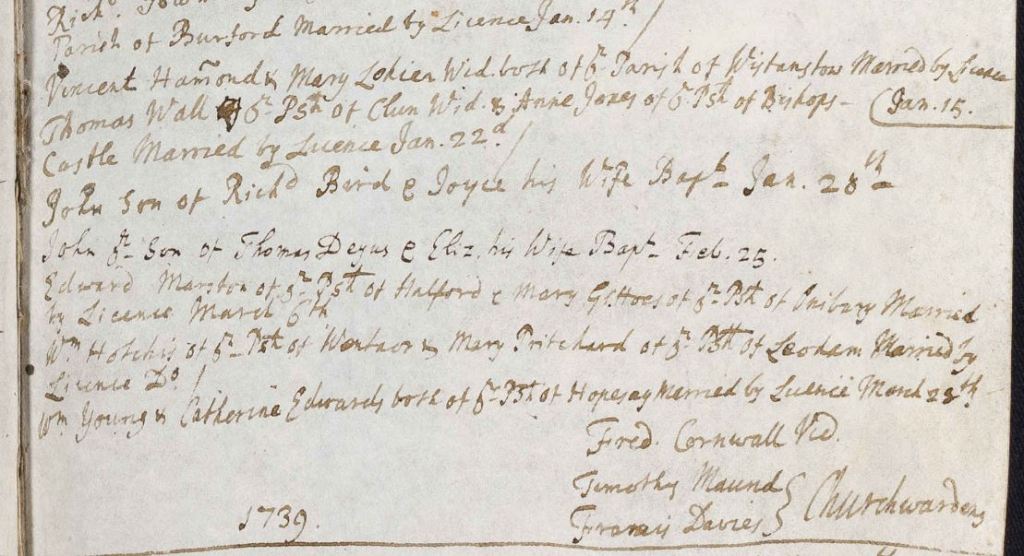 Parish of Burford Married by Licence Jan. 14th
Vincent Hamond & Mary Lokier Wid. both of ye Parish of Wistanstow Married by Licence
Thomas Wall of ye Psh of Clun Wid. & Anne Jones of ye Psh of Bishops- (Jan. 15.
Castle Married by Licence Jan. 22d.
John Son of Richd Bird & Joyce his Wife Bapt Jan. 28th
John ye Son of Thomas Deyus & Eliz. his Wife Bapt Feb. 25.
Edward Marston of ye Psh of Halford & Mary Gittoes of ye Psh of Onibury Married
by Licence March 6th
Wm Hotchis of ye Psh of Wentnor & Mary Pritchard of ye Psh of Married by
Licence Do.
Wm Young & Catherine Edwards both of ye Psh of Hopesay Married by Licence March 28th.
Fred. Cornwall Vic.
Timothy Maund
Francis Davies } Churchwardens
1739.